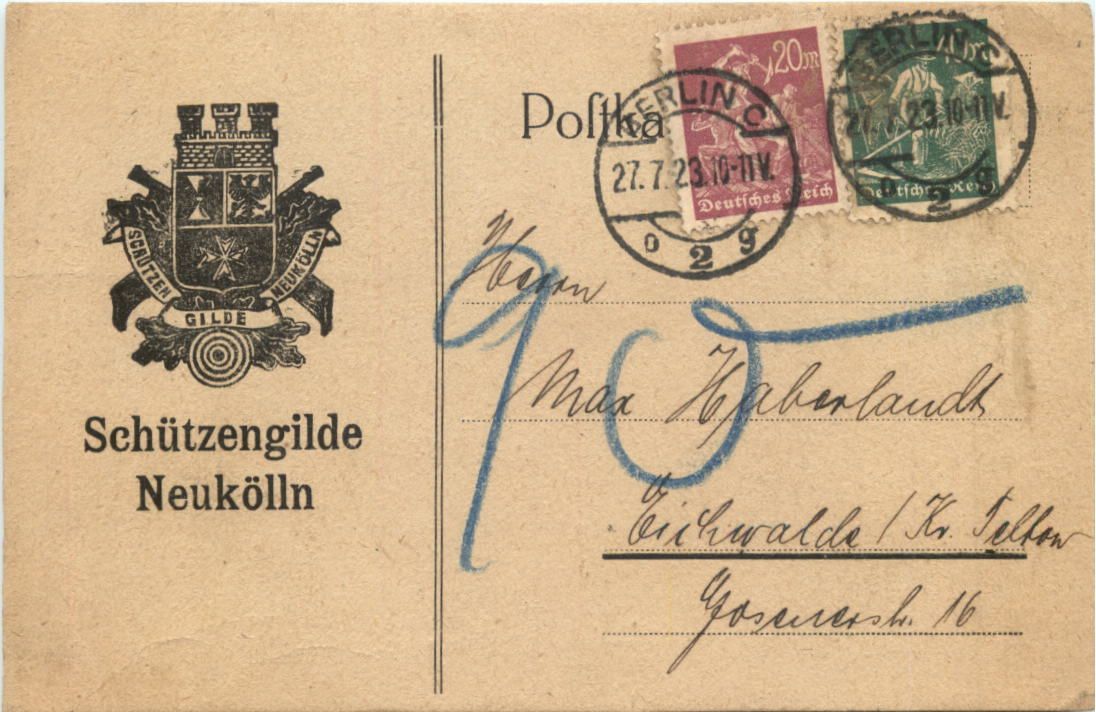 SCHÜTZEN
GILDE
NEUKÖLLN
Schützengilde
Neukölln
Poſtka
20m
Deutsches Reich
BERLIN C
27.7.23.10-11V.
o 2 g
BERLIN C
27.7.23.10-11V.
o 2 g
Herrn
90
Max Haberlandt
Eichwalde / Kr. Teltow
Gosenerstr. 16